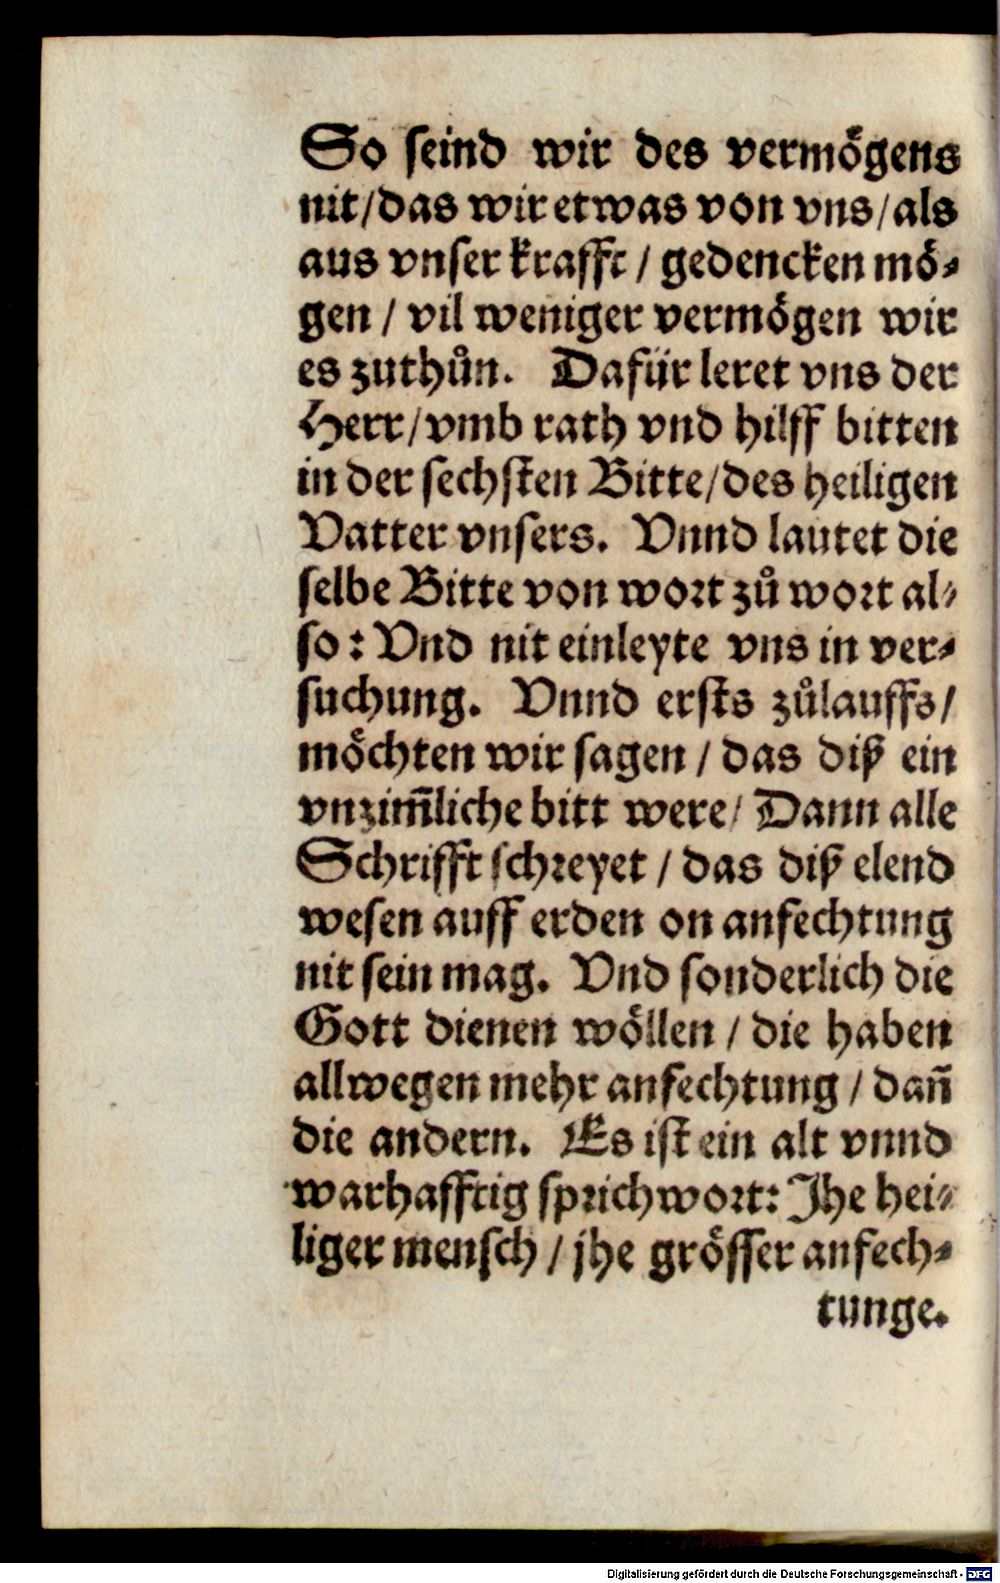 So seind wir des vermögens
nit/das wir etwas von vns/als
aus vnser krafft / gedencken mö-
gen / vil weniger vermögen wir
es zuthůn. Dafür leret vns der
Herr/vmb rath vnd hilff bitten
in der sechsten Bitte/des heiligen
Vatter vnsers. Vnnd lautet die
selbe Bitte von wort zů wort al-
so: Vnd nit einleyte vns in ver-
suchung. Vnnd ersts zůlauffs/
möchten wir sagen / das diß ein
vnzim̃liche bitt were/ Dann alle
Schrifft schreyet / das diß elend
wesen auff erden on anfechtung
nit sein mag. Vnd sonderlich die
Gott dienen wöllen / die haben
allwegen mehr anfechtung / dañ
die andern. Es ist ein alt vnnd
warhafftig sprichwort: Jhe hei-
liger mensch / jhe grösser anfech-
tunge.
Digitalisierung gefördert durch die Deutsche Forschungsgemeinschaft - DFG